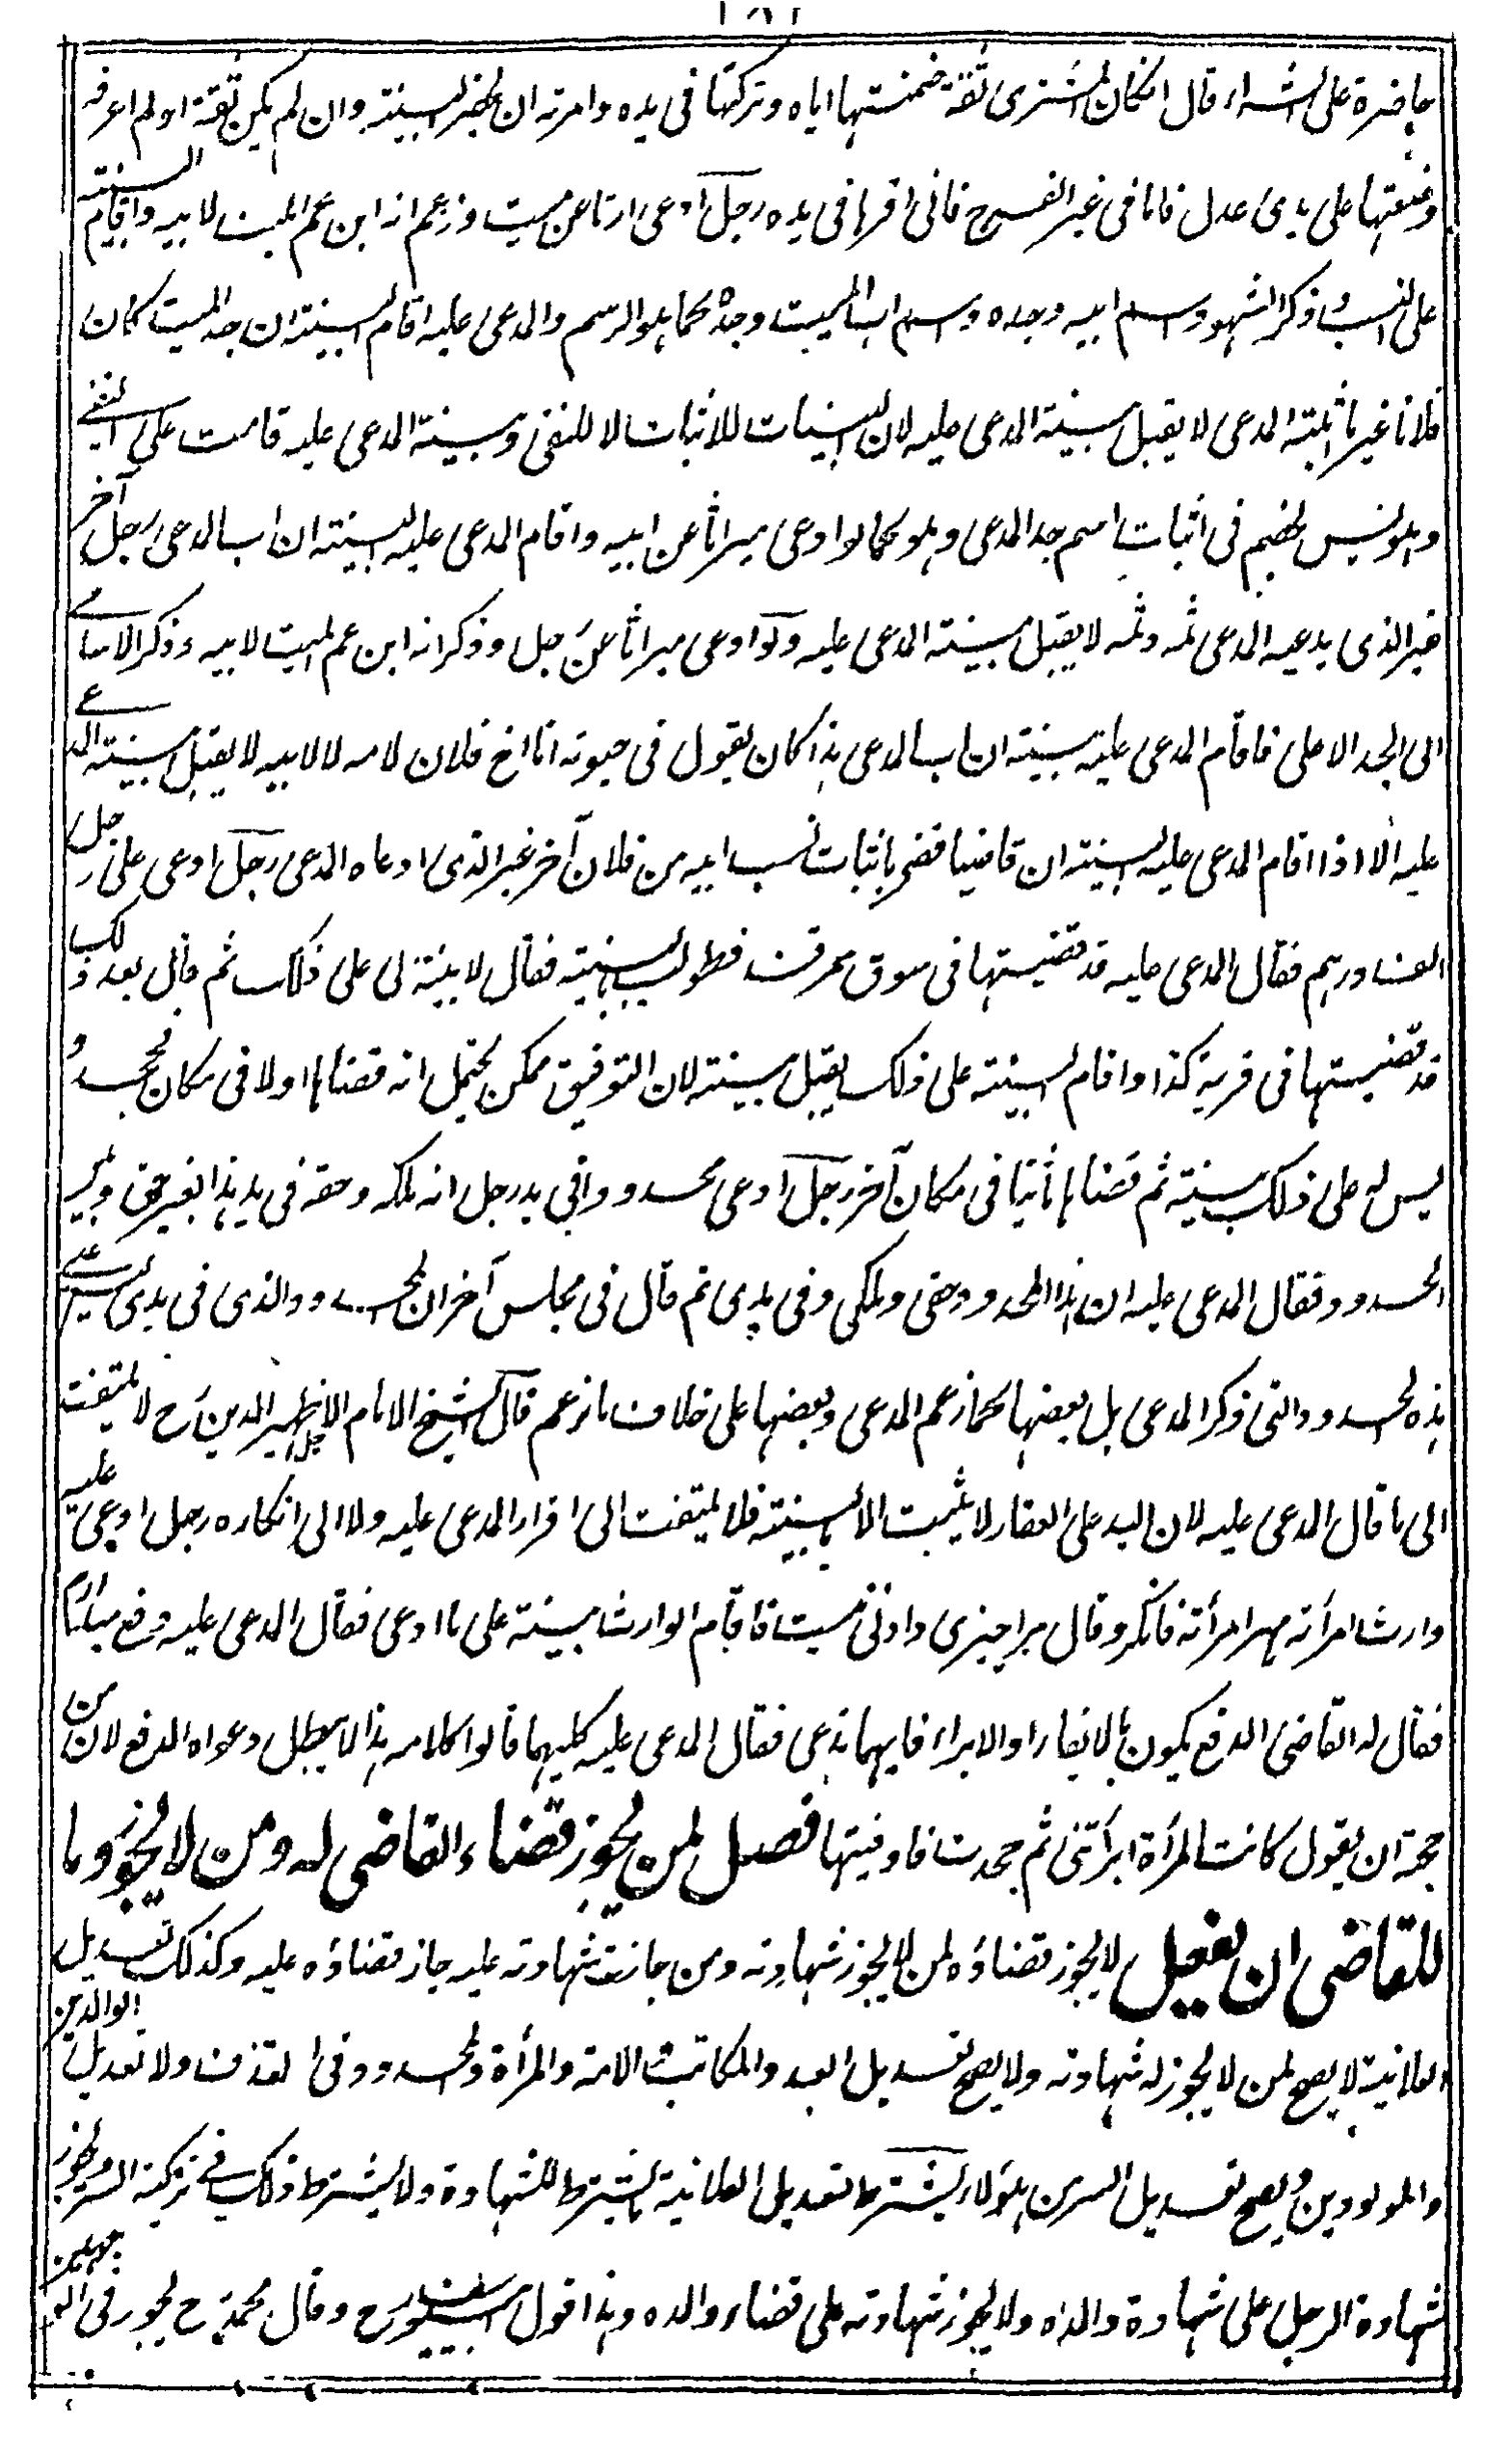 حاضرة على الشراء قال ان كان المشترى ثقة ضمنتها اياه وتركتها فى يده وامرته ان يحضر البينة وان لم يكن ثقة او لم اعرفه
وضعتها على يدى عدل فاما فى غير الفرج فانى اقرها فى يده رجل ادعى ارثا عن ميت وزعم انه ابن عم الميت لابيه واقام البينة
على النسب وذكر الشهود اسم ابيه وجده واسم اب الميت وجده كما هو الرسم والمدعى عليه اقام البينة ان جد الميت كان
فلانا غير ما اثبته المدعى لا يقبل بينة المدعى عليه لان البينات للاثبات لا للنفى وبينة المدعى عليه قامت على النفى
وهو ليس بخصم فى اثبات اسم جد المدعى وهو كما لو ادعى ميراثا عن ابيه واقام المدعى عليه البينة ان اب المدعى رجل آخر
غير الذى يدعيه المدعى ثمه وثمه لا يقبل بينة المدعى عليه ولو ادعى ميراثا عن رجل وذكر انه ابن عم الميت لابيه وذكر الاسامى
الى الجد الاعلى فاقام المدعى عليه بينة ان اب المدعى هذا كان يقول فى حيوته انا اخ فلان لامه لا لابيه لا يقبل بينة المدعى
عليه الا اذا اقام المدعى عليه البينة ان قاضيا قضى باثبات نسب ابيه من فلان آخر غير الذى ادعاه المدعى رجل ادعى على رجل
الف درهم فقال المدعى عليه قد قضيتها فى سوق سمرقند فطولب بالبينة فقال لا بينة لى على ذلك ثم قال بعد ذلك
قد قضيتها فى قرية كذا واقام البينة على ذلك يقبل بينته لان التوفيق ممكن يحتمل انه قضاها اولا فى مكان فجحد و
ليس له على ذلك بينة ثم قضاها ثانيا فى مكان آخر رجل ادعى محدودا فى يد رجل انه ملكه وحقه فى يد هذا بغير حق وبين
الحدود فقال المدعى عليه ان هذا المحدود حقى وملكى وفى يدى ثم قال فى مجلس آخر ان المحدود الذى فى يدى ليس على
هذه الحدود التى ذكر المدعى بل بعضها كما زعم المدعى وبعضها على خلاف ما زعم قال الشيخ الامام الاجل ظهير الدين رح لا يلتفت
الى ما قال المدعى عليه لان اليد على العقار لا يثبت الا بالبينة فلا يلتفت الى اقرار المدعى عليه ولا الى انكاره رجل ادعى عليه
وارث امرأته مهر امرأته فانكر وقال مرا چيزى دادنى نيست فاقام الوارث بينة على ما ادعى فقال المدعى عليه دفع
فقال له القاضى الدفع يكون بالايفاء او الابراء فايهما تدعى فقال المدعى عليه كليهما قالوا كلامه هذا لا يبطل دعواه الدفع لان من
حجته ان يقول كانت المرأة ابرأتنى ثم جحدت فاوفيتها فصل لمن يجوز قضاء القاضى له ومن لا يجوز وما
للقاضى ان يفعل لا يجوز قضاؤه لمن لا يجوز شهادته ومن جازت شهادته عليه جاز قضاؤه عليه وكذلك تعديل
العلانية لا يصح لمن لا يجوز له شهادته ولا يصح تعديل العبد والمكاتب الامة والمرأة والمحدود فى القذف ولا تعديل الوالدين
والمولودين ويصح تعديل السر من هؤلاء يشترط لتعديل العلانية ما يشترط للشهادة ولا يشترط ذلك فى تزكية السر ويجوز
شهادة الرجل على شهادة والده ولا يجوز شهادته على قضاء والده وهذا قول ابى يوسف رح وقال محمد رح يجوز فى